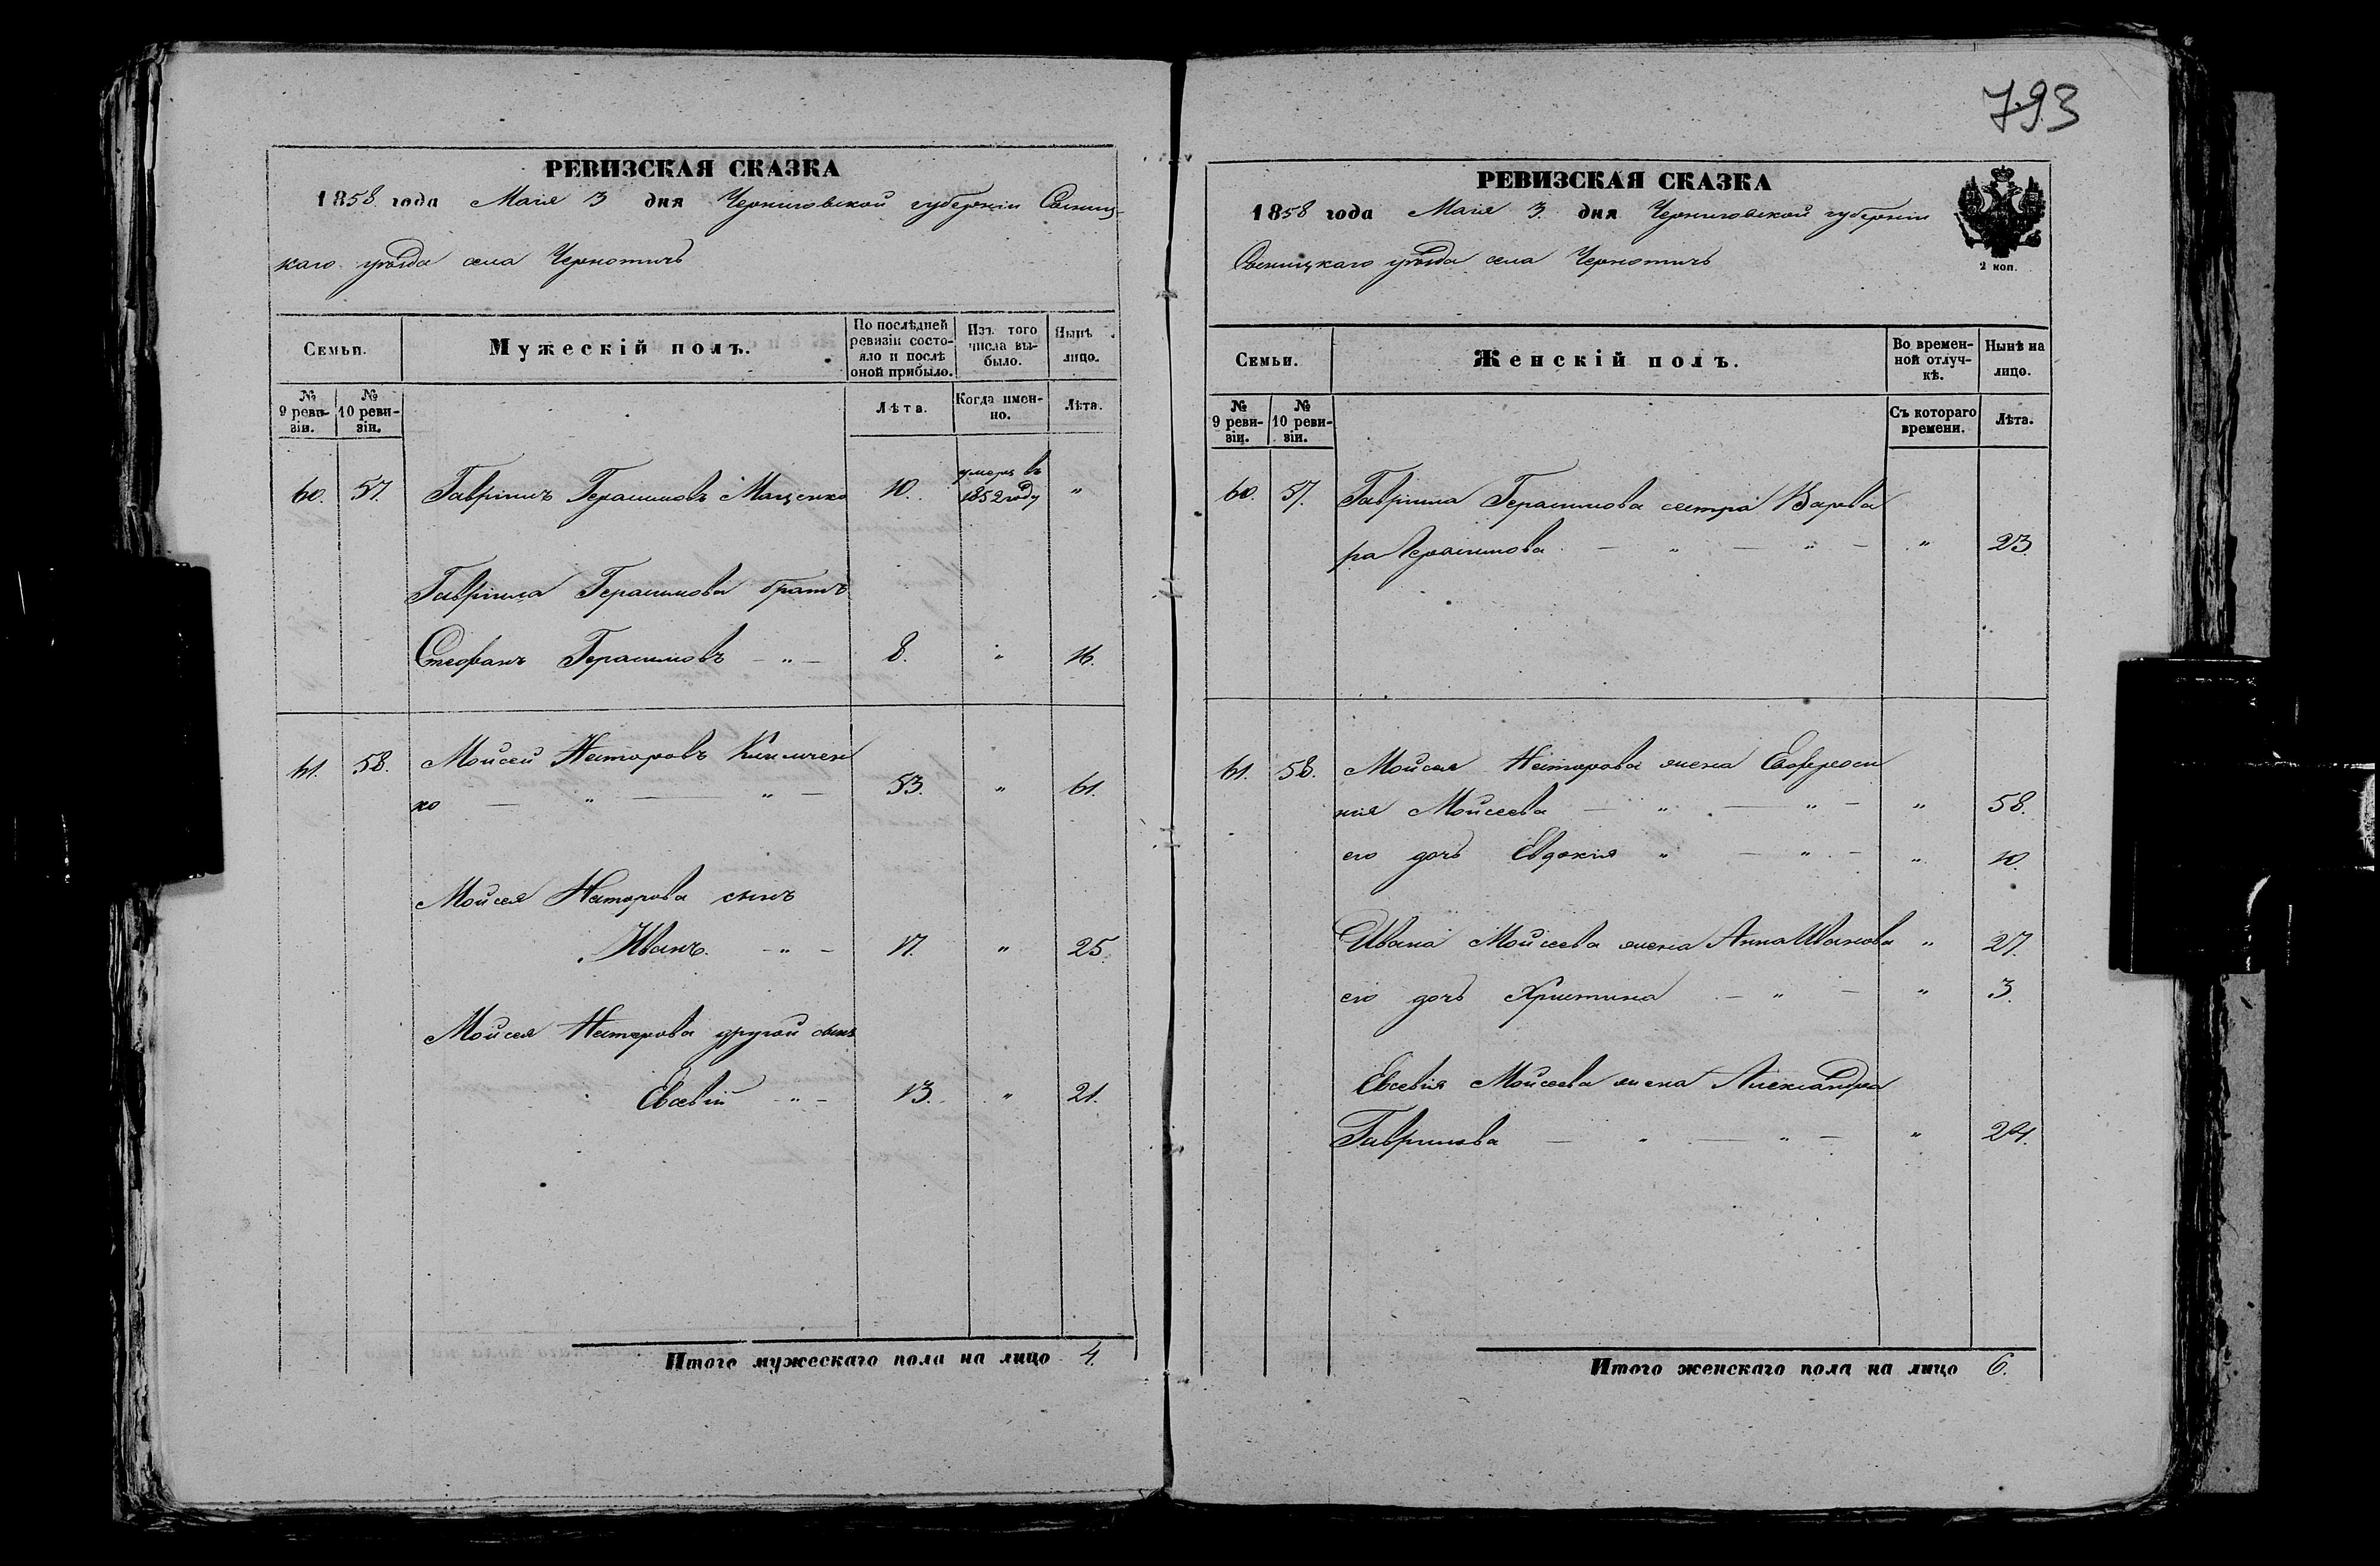 793
РЕВИЗСКАЯ СКАЗКА
1858 года Маія 3 дня Черниговской губерніи Сосниц-
каго уѣзда села Чернотичъ
Семьи.
Мужескій полъ.
По послѣдней ревизіи состо-яло и послѣ оной прибыло.
Изъ того числа вы-было.
Нынѣ лицо.
№ 9 реви-зіи.
№ 10 реви-зіи.
Лѣта.
Когда имен-но.
Лѣта.
умеръ въ
60. 57. Гавріилъ Герасимовъ Маценко 10. 1852 году "
Гавріила Герасимова братъ
Стефанъ Герасимовъ — " — 8. " 16.
61. 58. Мойсей Нестеровъ
ко — " — " — 53. " 61.
Мойсея Нестерова сынъ
Иванъ. — " — 17. " 25.
Мойсея Нестерова другой сынъ
Евсевій — " — 13. " 21.
Итого мужескаго пола на лицо 4.
РЕВИЗСКАЯ СКАЗКА
1858 года Маія 3. дня Черниговской губерніи
Сосницкаго уѣзда села Чернотичъ
2 коп.
Семьи.
Женскій полъ.
Во времен-ной отлуч-кѣ.
Нынѣ на лицо.
№ 9 реви-зіи.
№ 10 реви-зіи.
Съ котораго времени.
Лѣта.
60. 57. Гавріила Герасимова сестра Варва
ра Герасимова — " — " — " 23.
61. 58. Мойсея Нестерова жена Евфроси
нія Мойсеева — " — " — " 58.
его дочь Евдокія " — " — " 10.
Ивана Мойсеева жена Анна Иванова " 27.
его дочь Христина — " — " 3.
Евсевія Мойсеева жена Александра
Гаврилова — " — " — " 24.
Итого женскаго пола на лицо 6.